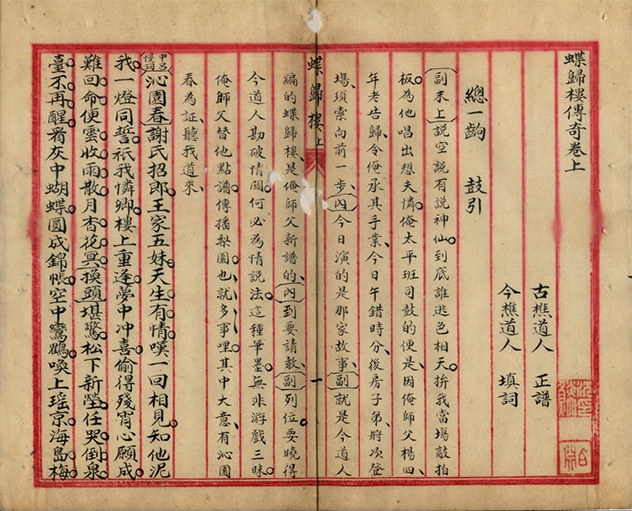 蝶歸樓傳奇卷上
古樵道人 正譜
今樵道人 填詞
總一齣 鼓引
副末上說空說有說神仙到底誰逃色相天拚我當場敲拍
板為他唱出想夫憐俺太平班司鼓的便是因俺師父楊四
年老告歸令俺承其手業今日午錯時分後房子弟將次登
場須索向前一步內今日演的是那家故事副就是今道人
編的蝶歸樓是俺師父新譜的內到要請教副列位要曉得
今道人勘破情關何必為情說法這種筆墨無非游戲三昧
俺師父替他點譜傳播梨園也就多事哩其中大意有沁園
春為証聽我道來
蝶歸樓 上 一
中呂慢詞沁園春謝氏招郎王家五妹天生有情嘆一回相見知他泥
我一燈同誓祇我憐卿樓上重逢夢中冲喜偷得殘宵心願成
難回命便雲收雨散月杳花冥換頭堪驚松下新塋任哭倒泉
臺不再醒看灰中蝴蝶圓成錦帳空中鸞鶴喚上瑤京海島梅